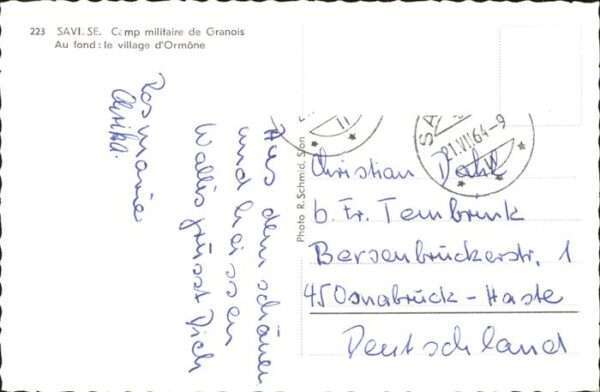 223 SAVIÈSE. Camp militaire de Granois
Au fond: le village d'Ormône
Aus dem schönen
und heissen
Wallis grüsst Dich
Rosmarie
Photo R. Schmid, Sion
21.VII.64-9
Christian
b. Fr. Tembrink
Bersenbrückerstr. 1
45 Osnabrück-Haste
Deutschland